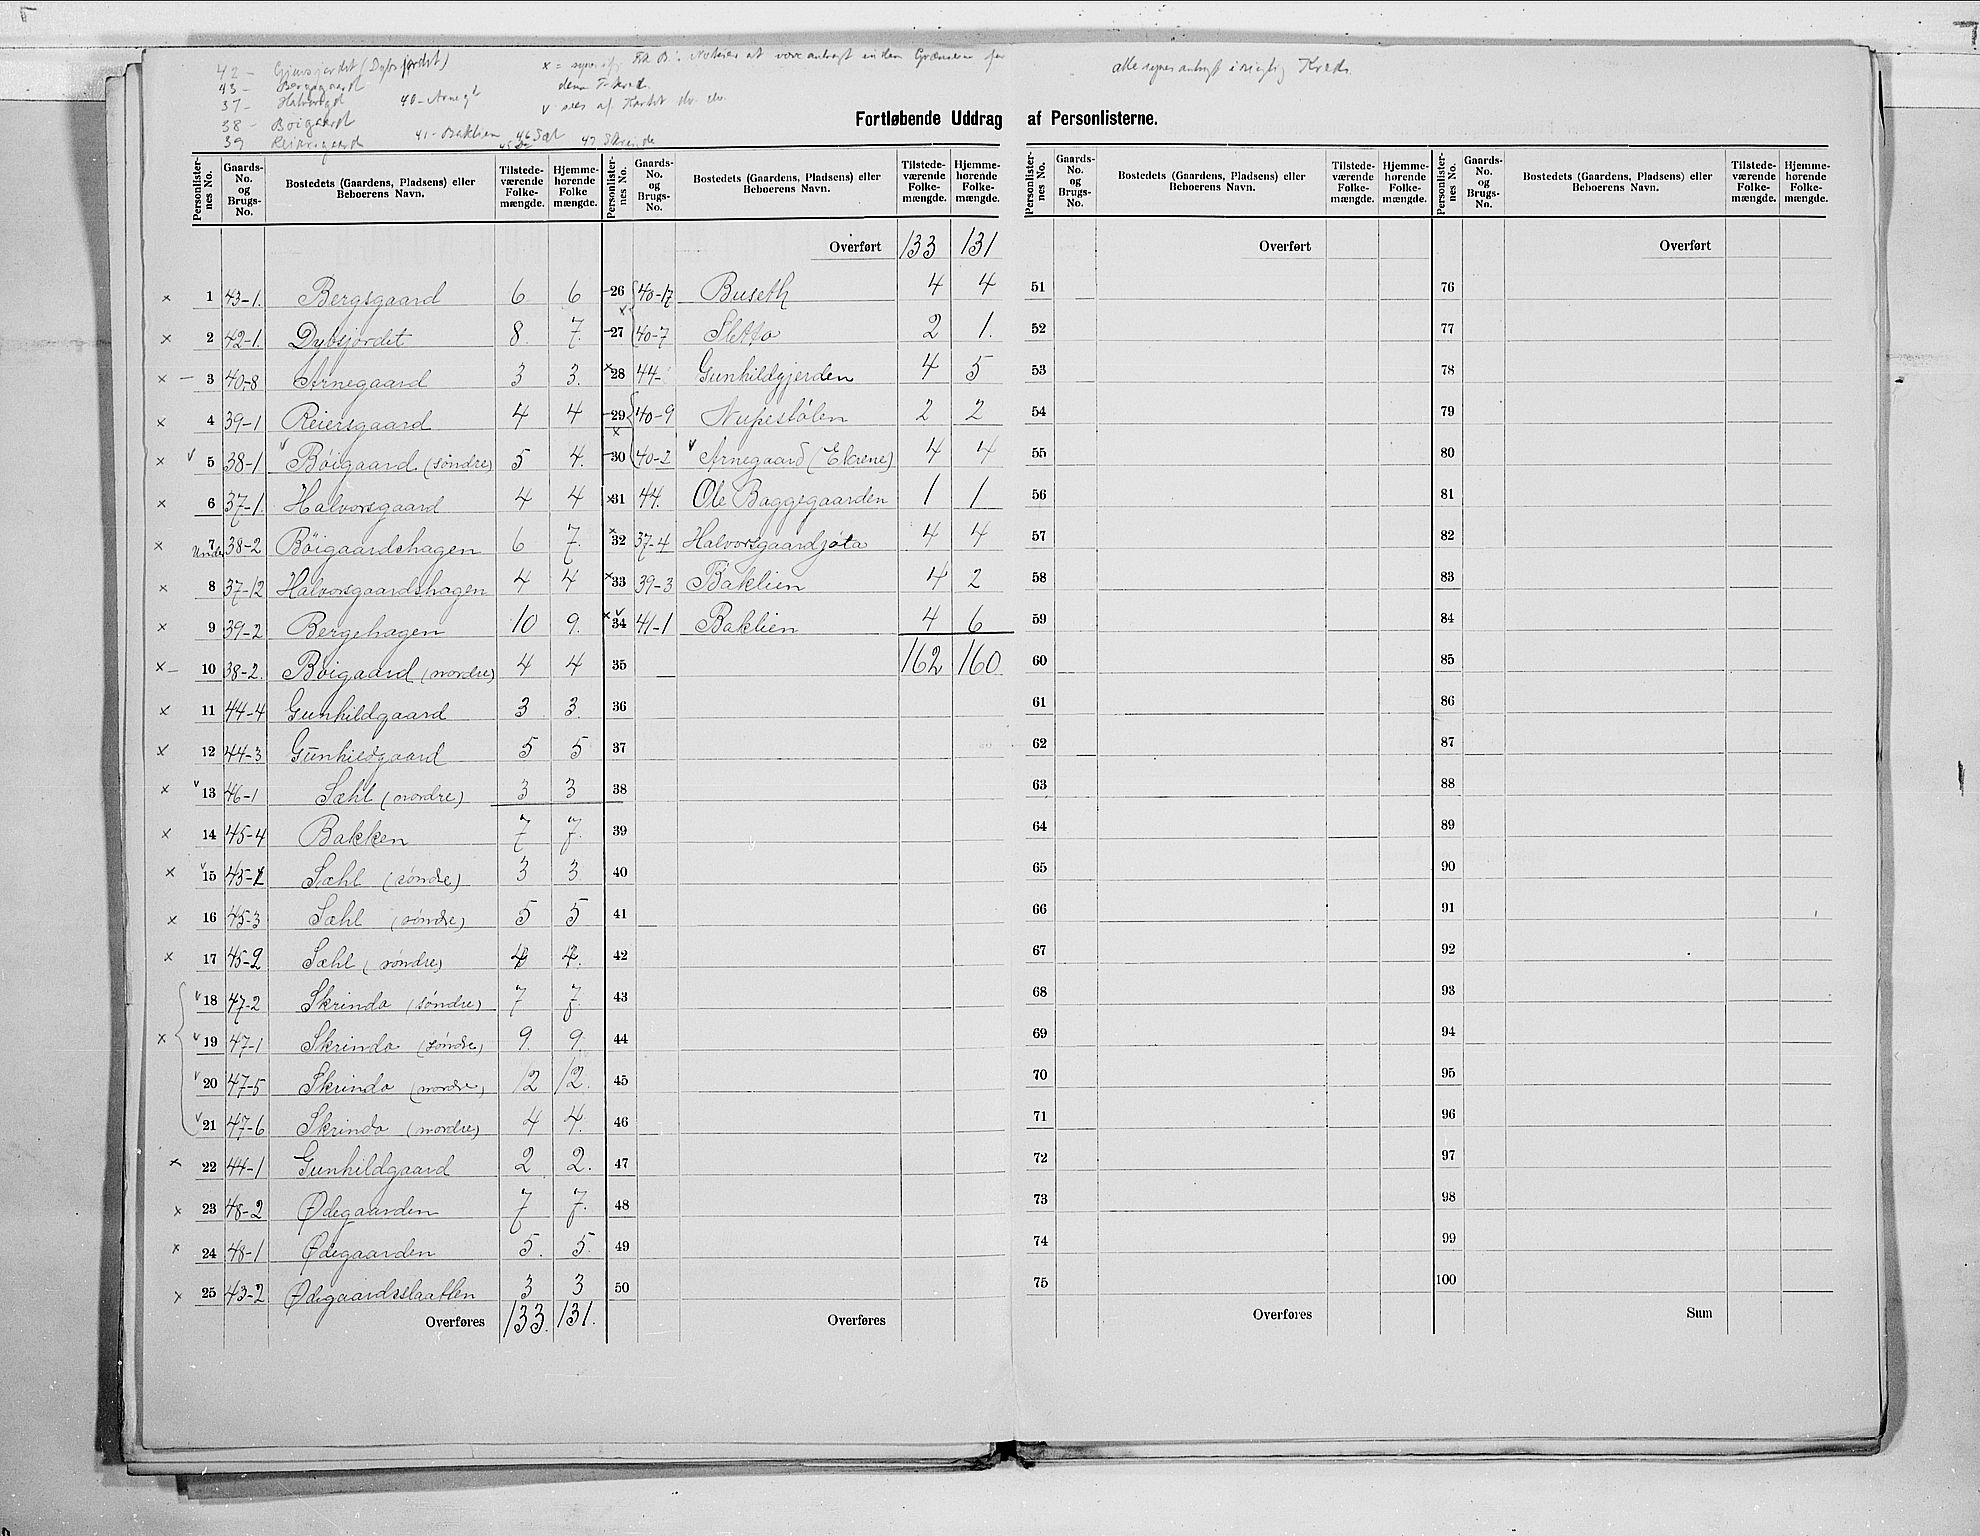 42 - Gjeusjordet (Dybsjordet)
43 - Bergsgaard
37 - Halvorsgd 40 - Arnegd
38 - Boigaard
39 Reiersgaard 41 - Baklien 46 Sæl 47 Skrinde
x = synes af Fk. B.'s Notiser at være antagt inden Grænsen for
denne Tkred.
v sees af Kartet do. do.
alle synes antagt i rigtig Kreds
Fortløbende Uddrag af Personlisterne.
Personlisternes No. Gaards-No. og Brugs-No. Bostedets (Gaardens, Pladsens) eller Beboerens Navn. Tilstedeværende Folkemængde. Hjemmehørende Folkemængde.
x 1 43-1. Bergsgaard 6 6
x 2 42-1. Dybsjordet 8. 7.
x — 3 40-8 Arnegaard 3 3.
x 4 39-1 Reiersgaard 4 4
x v 5 38-1 v Böigaard (söndre) 5 4.
x 6 37-1. Halvorsgaard 4 4
x 7 Under 38-2 Böigaardshagen 6 7.
x 8 37-12 Halvorsgaardshagen 4 4
x 9 39-2 Bergehagen 10 9.
x — 10 38-2. Böigaard (nordre) 4 4
x 11 44-4 Gunhildgaard 3 3.
x 12 44-3 Gunhildgaard 5 5
x v 13 46-1 Sæhl (nordre) 3 3
x 14 45-4 Bakken 7 7.
x v 15 45-1 Sæhl (söndre) 3 3
x 16 45-3 Sæhl (söndre) 5 5
x 17 45-2 Sæhl (söndre) 4 4.
v 18 47-2 Skrindo (söndre) 7 7
x v 19 47-1 Skrindo (söndre) 9. 9
v 20 47-5 Skrindo (nordre) 12 12.
v 21 47-6 Skrindo (nordre) 4 4.
x 22 44-1 Gunhildgaard 2 2.
x 23 48-2 Ödegaarden 7 7.
x 24 48-1 Ödegaarden 5. 5.
x 25 43-2 Ödegaardsslaatten 3 3
Overføres 133. 131.
Personlisternes No. Gaards-No. og Brugs-No. Bostedets (Gaardens, Pladsens) eller Beboerens Navn. Tilstedeværende Folkemængde. Hjemmehørende Folkemængde.
Overført 133 131
26 40-17 Buseth 4 4
x 27 40-7 Sletto 2 1.
x 28 44- Gunhildgjerden 4 5
29 40-9 Nupestölen 2 2
x 30 40-2 v Arnegaard (Ekrene) 4 4
x 31 44. Ole Baggegaarden 1 1
x 32 37-4 Halvorsgaardjota 4 4
x 33 39-3 Baklien 4 2
x v 34 41-1 Baklien 4 6
35 162 160
36
37
38
39
40
41
42
43
44
45
46
47
48
49
50
Overføres
Personlisternes No. Gaards-No. og Brugs-No. Bostedets (Gaardens, Pladsens) eller Beboerens Navn. Tilstedeværende Folkemængde. Hjemmehørende Folkemængde.
Overført
51
52
53
54
55
56
57
58
59
60
61
62
63
64
65
66
67
68
69
70
71
72
73
74
75
Overføres
Personlisternes No. Gaards-No. og Brugs-No. Bostedets (Gaardens, Pladsens) eller Beboerens Navn. Tilstedeværende Folkemængde. Hjemmehørende Folkemængde.
Overført
76
77
78
79
80
81
82
83
84
85
86
87
88
89
90
91
92
93
94
95
96
97
98
99
100
Sum